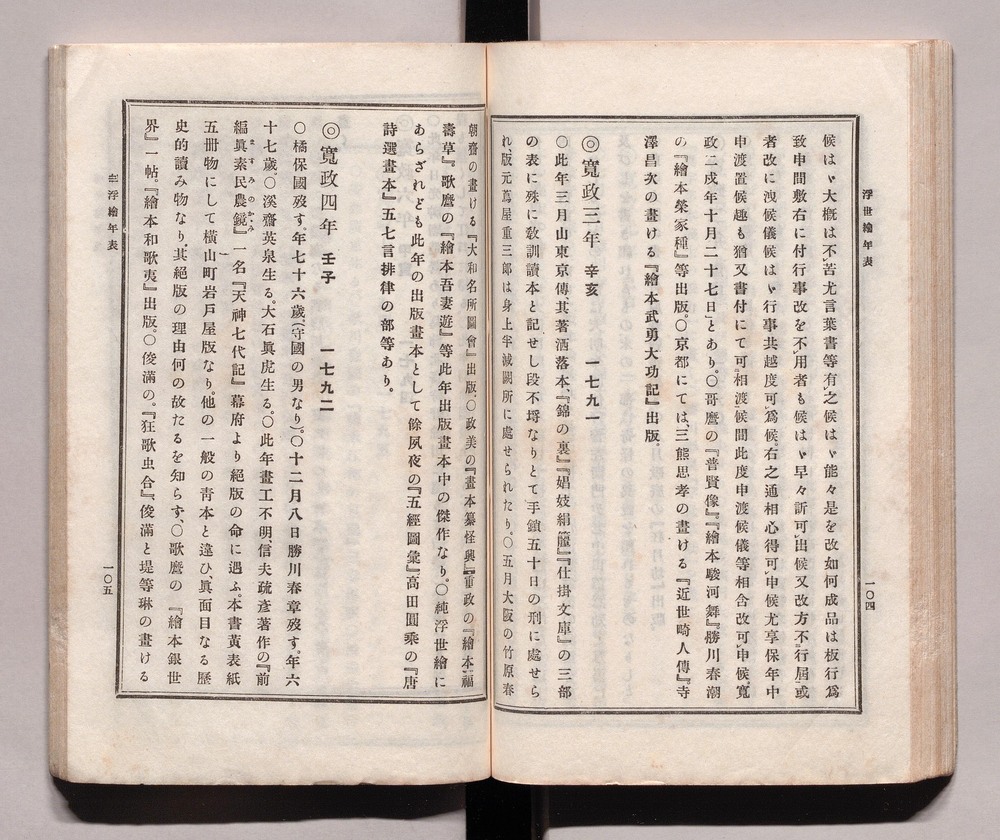 浮世繪年表
候はゞ大概は不苦尤言葉書等有之候はゞ能々是を改如何成品は板行爲
致申間敷右に付行事改を不用者も候はゞ早々訴可出候又改方不行屆或
者改に洩候儀候はゞ行事共越度可爲候。右之通相心得可申候尤享保年中
申渡置候趣も猶又書付にて可相渡候間此度申渡候儀等相含改可申候。寬
政二戌年十月二十七日」とあり。〇哥麿の『普賢像』『繪本駿河舞』勝川春潮
の『繪本榮家種』等出版。〇京都にては、三熊思孝の畫ける『近世畸人傳』。寺
澤昌次の畫ける『繪本武勇大功記』出版。
◎寬政三年 辛亥 一七九一
〇此年三月山東京傳其著洒落本、『錦の裏』『娼妓絹籭』『仕掛文庫』の三部
の表に殊に敎訓讀本と記せし段不埒なりとて手鎖五十日の刑に處せら
れ、版元蔦屋重三郎は身上半減闕所に處せられたり。〇五月大阪の竹原春
一〇四
朝齋の畫ける『大和名所圖會』出版。〇政美の『畫本纂怪興』『重政の『繪本福
壽草』。歌麿の『繪本吾妻遊』等此年出版畫本中の傑作なり。〇純浮世繪に
あらざれども此年の出版畫本として餘夙夜の『五經圖彙』高田圓乘の『唐
詩選畫本』五七言排律の部等あり。
◎寬政四年 壬子 一七九二
〇橘保國歿す。年七十六歲。(守國の男なり)。〇十二月八日勝川春章歿す。年六
十七歲。〇溪齋英泉生る。大石眞虎生る。〇此年畫工不明、信夫疏彥著作の『前
編眞素民農鏡』一名『天神七代記』幕府より絕版の命に遇ふ。本書黃表紙
ますみのかゞみ
五冊物にして橫山町岩戸屋版なり。他の一般の靑本と違ひ、眞面目なる歷
史的讀み物なり。其絕版の理由何の故たるを知らず。〇歌麿の『繪本銀世
界』一帖。『繪本和歌夷』出版。〇俊滿の。『狂歌虫合』。俊滿と堤等琳の畫ける
浮繪年表
一〇五